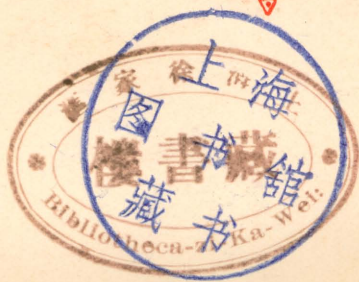 上海
图书舘
藏书
家徐
樓書藏
Bibliotheca- Ka-Wei: